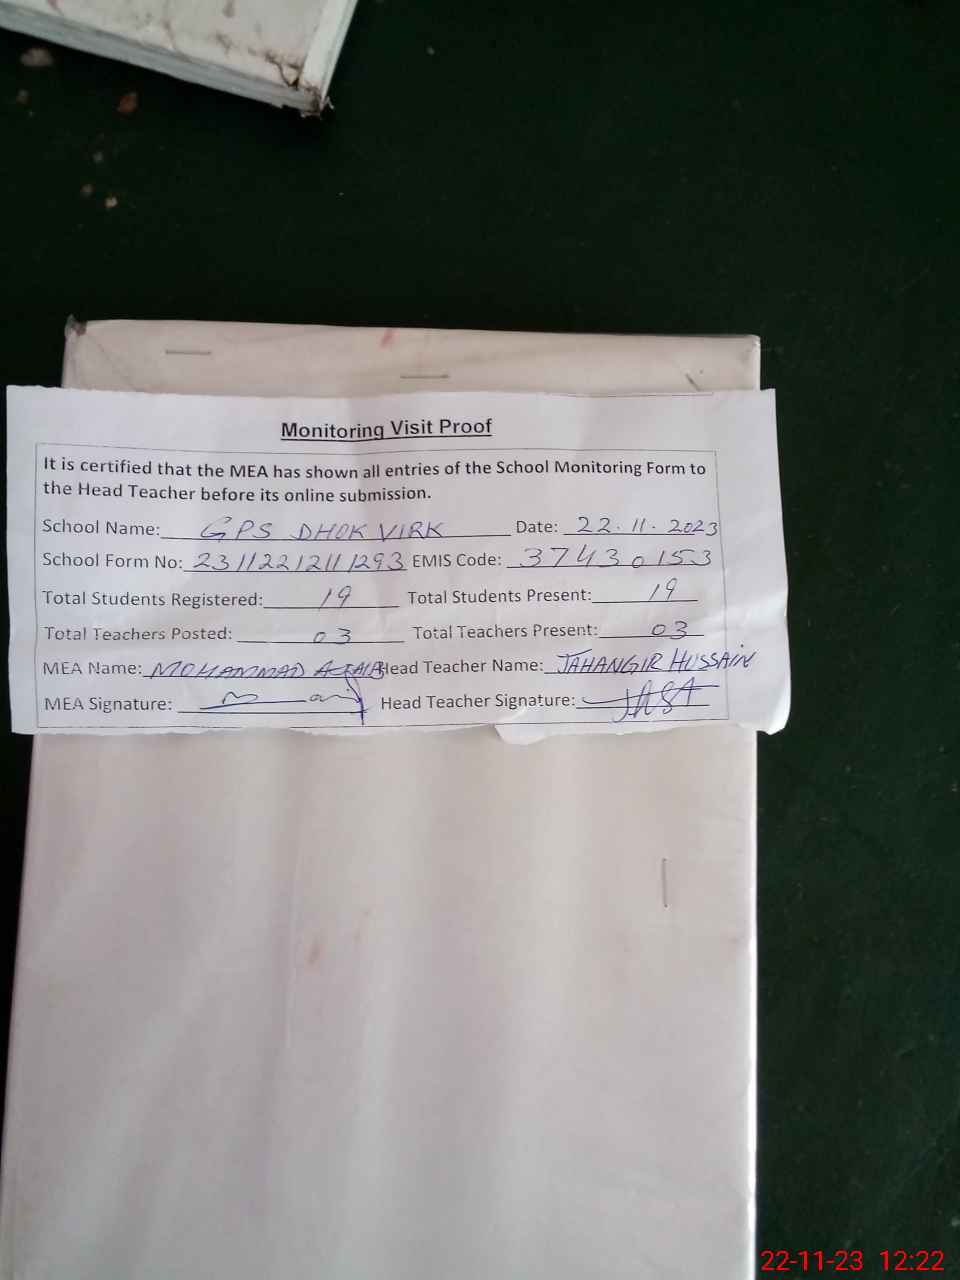 Monitoring Visit Proof
It is certified that the MEA has shown all entries of the School Monitoring Form to
the Head Teacher before its online submission.
School Name: GPS DHOK VIRK Date: 22.11.2023
School Form No: 23112212111293 EMIS Code: 37430153
Total Students Registered: 19 Total Students Present: 19
Total Teachers Posted: 03 Total Teachers Present: 03
MEA Name: MOHAMMAD Head Teacher Name: JAHANGIR HUSSAIN
MEA Signature: Head Teacher Signature:
22-11-23 12:22